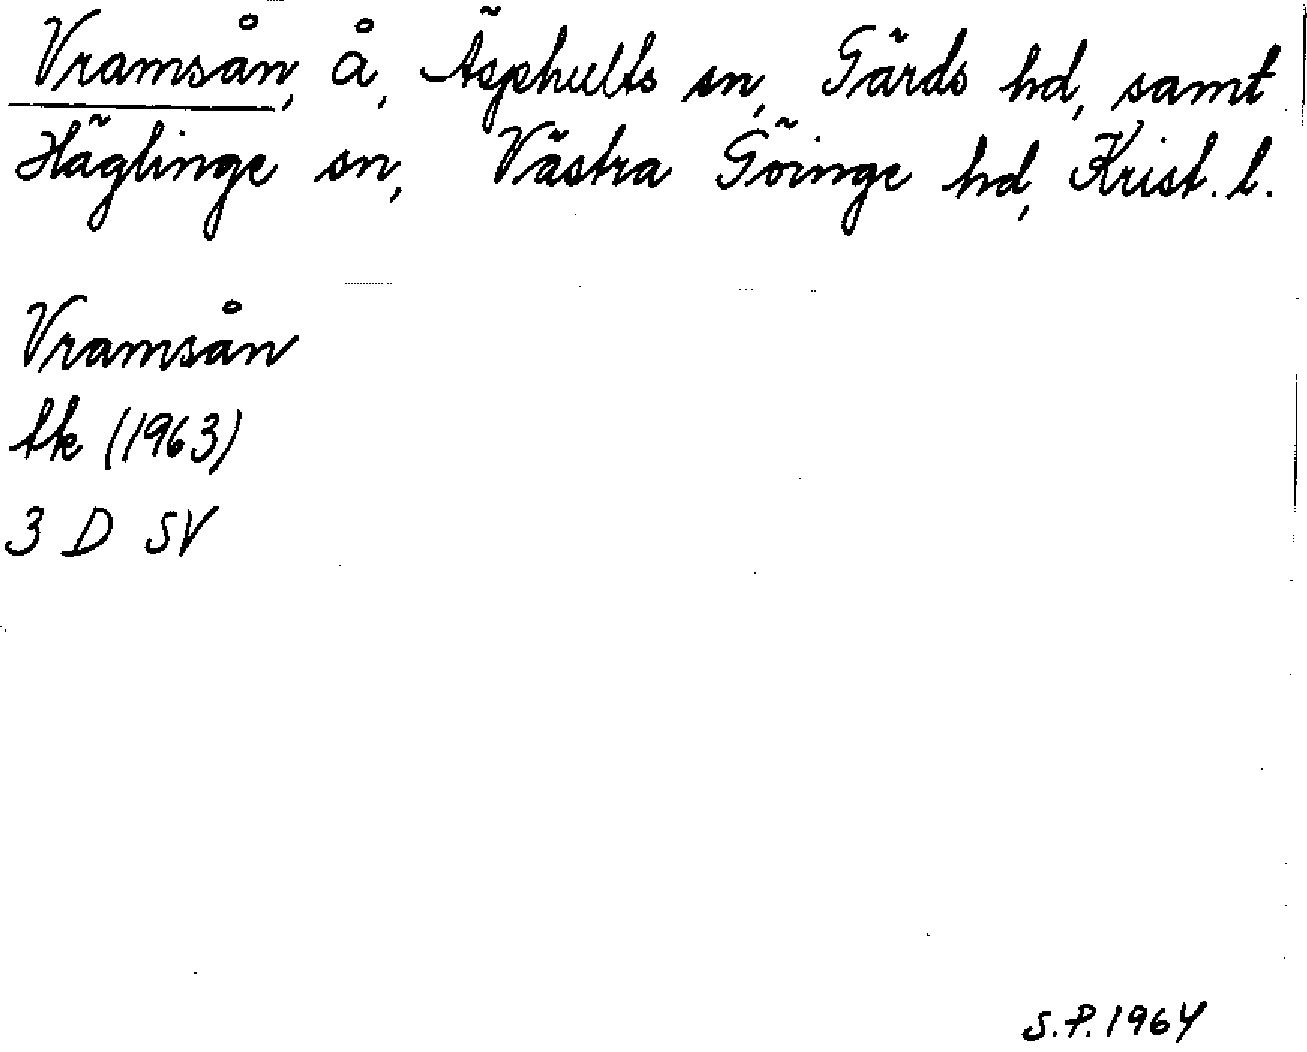 Vramsån, å, Äsphults sn, Gärds hd, samt
Häglinge sn, Västra Göinge hd, Krist. l.
Vramsån
tk (1963)
3 D SV
S.P. 1964